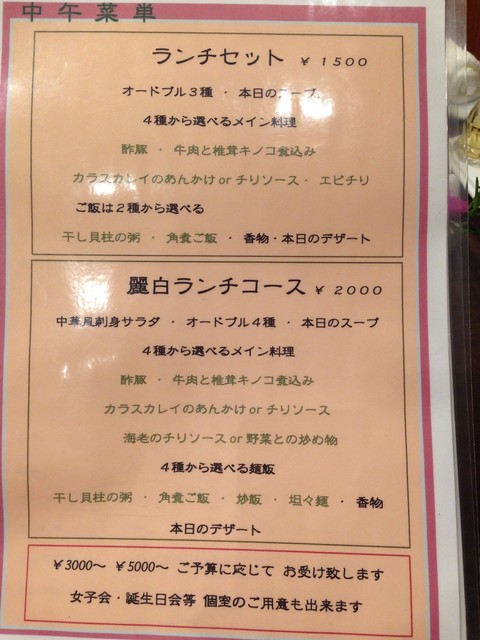 中午菜单
ランチセット ￥1500
オードブル3種 ・ 本日のスープ
4種から選べるメイン料理
酢豚 ・ 牛肉と椎茸キノコ煮込み
カラスカレイのあんかけ or チリソース ・ エビチリ
ご飯は2種から選べる
干し貝柱の粥 ・ 角煮ご飯 ・ 香物・本日のデザート
麗白ランチコース ￥2000
中華風刺身サラダ ・ オードブル4種 ・ 本日のスープ
4種から選べるメイン料理
酢豚 ・ 牛肉と椎茸キノコ煮込み
カラスカレイのあんかけ or チリソース
海老のチリソース or 野菜との炒め物
4種から選べる麺飯
干し貝柱の粥 ・ 角煮ご飯 ・ 炒飯 ・ 坦々麺 ・ 香物
本日のデザート
￥3000～ ￥5000～ ご予算に応じて お受け致します
女子会・誕生日会等 個室のご用意も出来ます